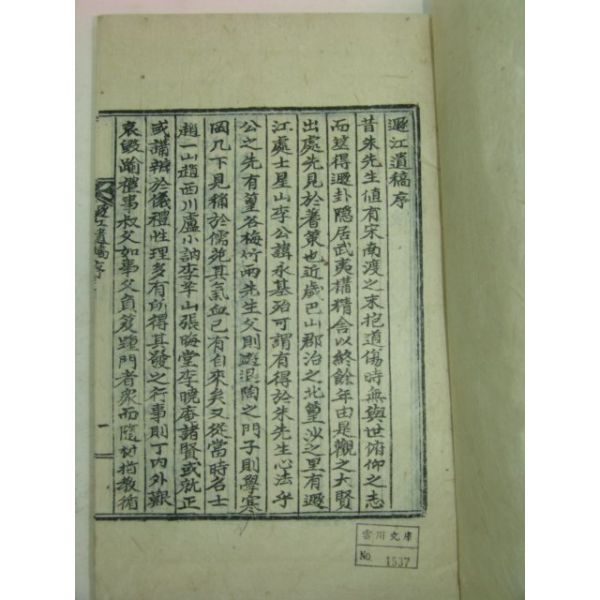 遯江遺稿序
昔朱先生値有宋南渡之末抱道傷時無與世俯仰之志
而筮得遯卦隱居武夷構精舍以終餘年由是觀之大賢
出處先見於蓍策也近歲巴山郡治之北篁沙之里有遯
江處士星山李公諱永基殆可謂有得於朱先生心法乎
公之先有篁谷梅竹兩先生父則遊退陶之門子則學寒
岡几下見稱於儒苑其氣血已有自來矣又從當時名士
趙一山趙西川盧小訥李莘山張晦堂李曉庵諸賢或就正
或講辨於儀禮性理多有所得其發之行事則丁內外艱
哀毀踰禮事叔父如事父負笈踵門者衆而隨材指敎循
遯江遺稿序
一
雲川文庫
No. 1537